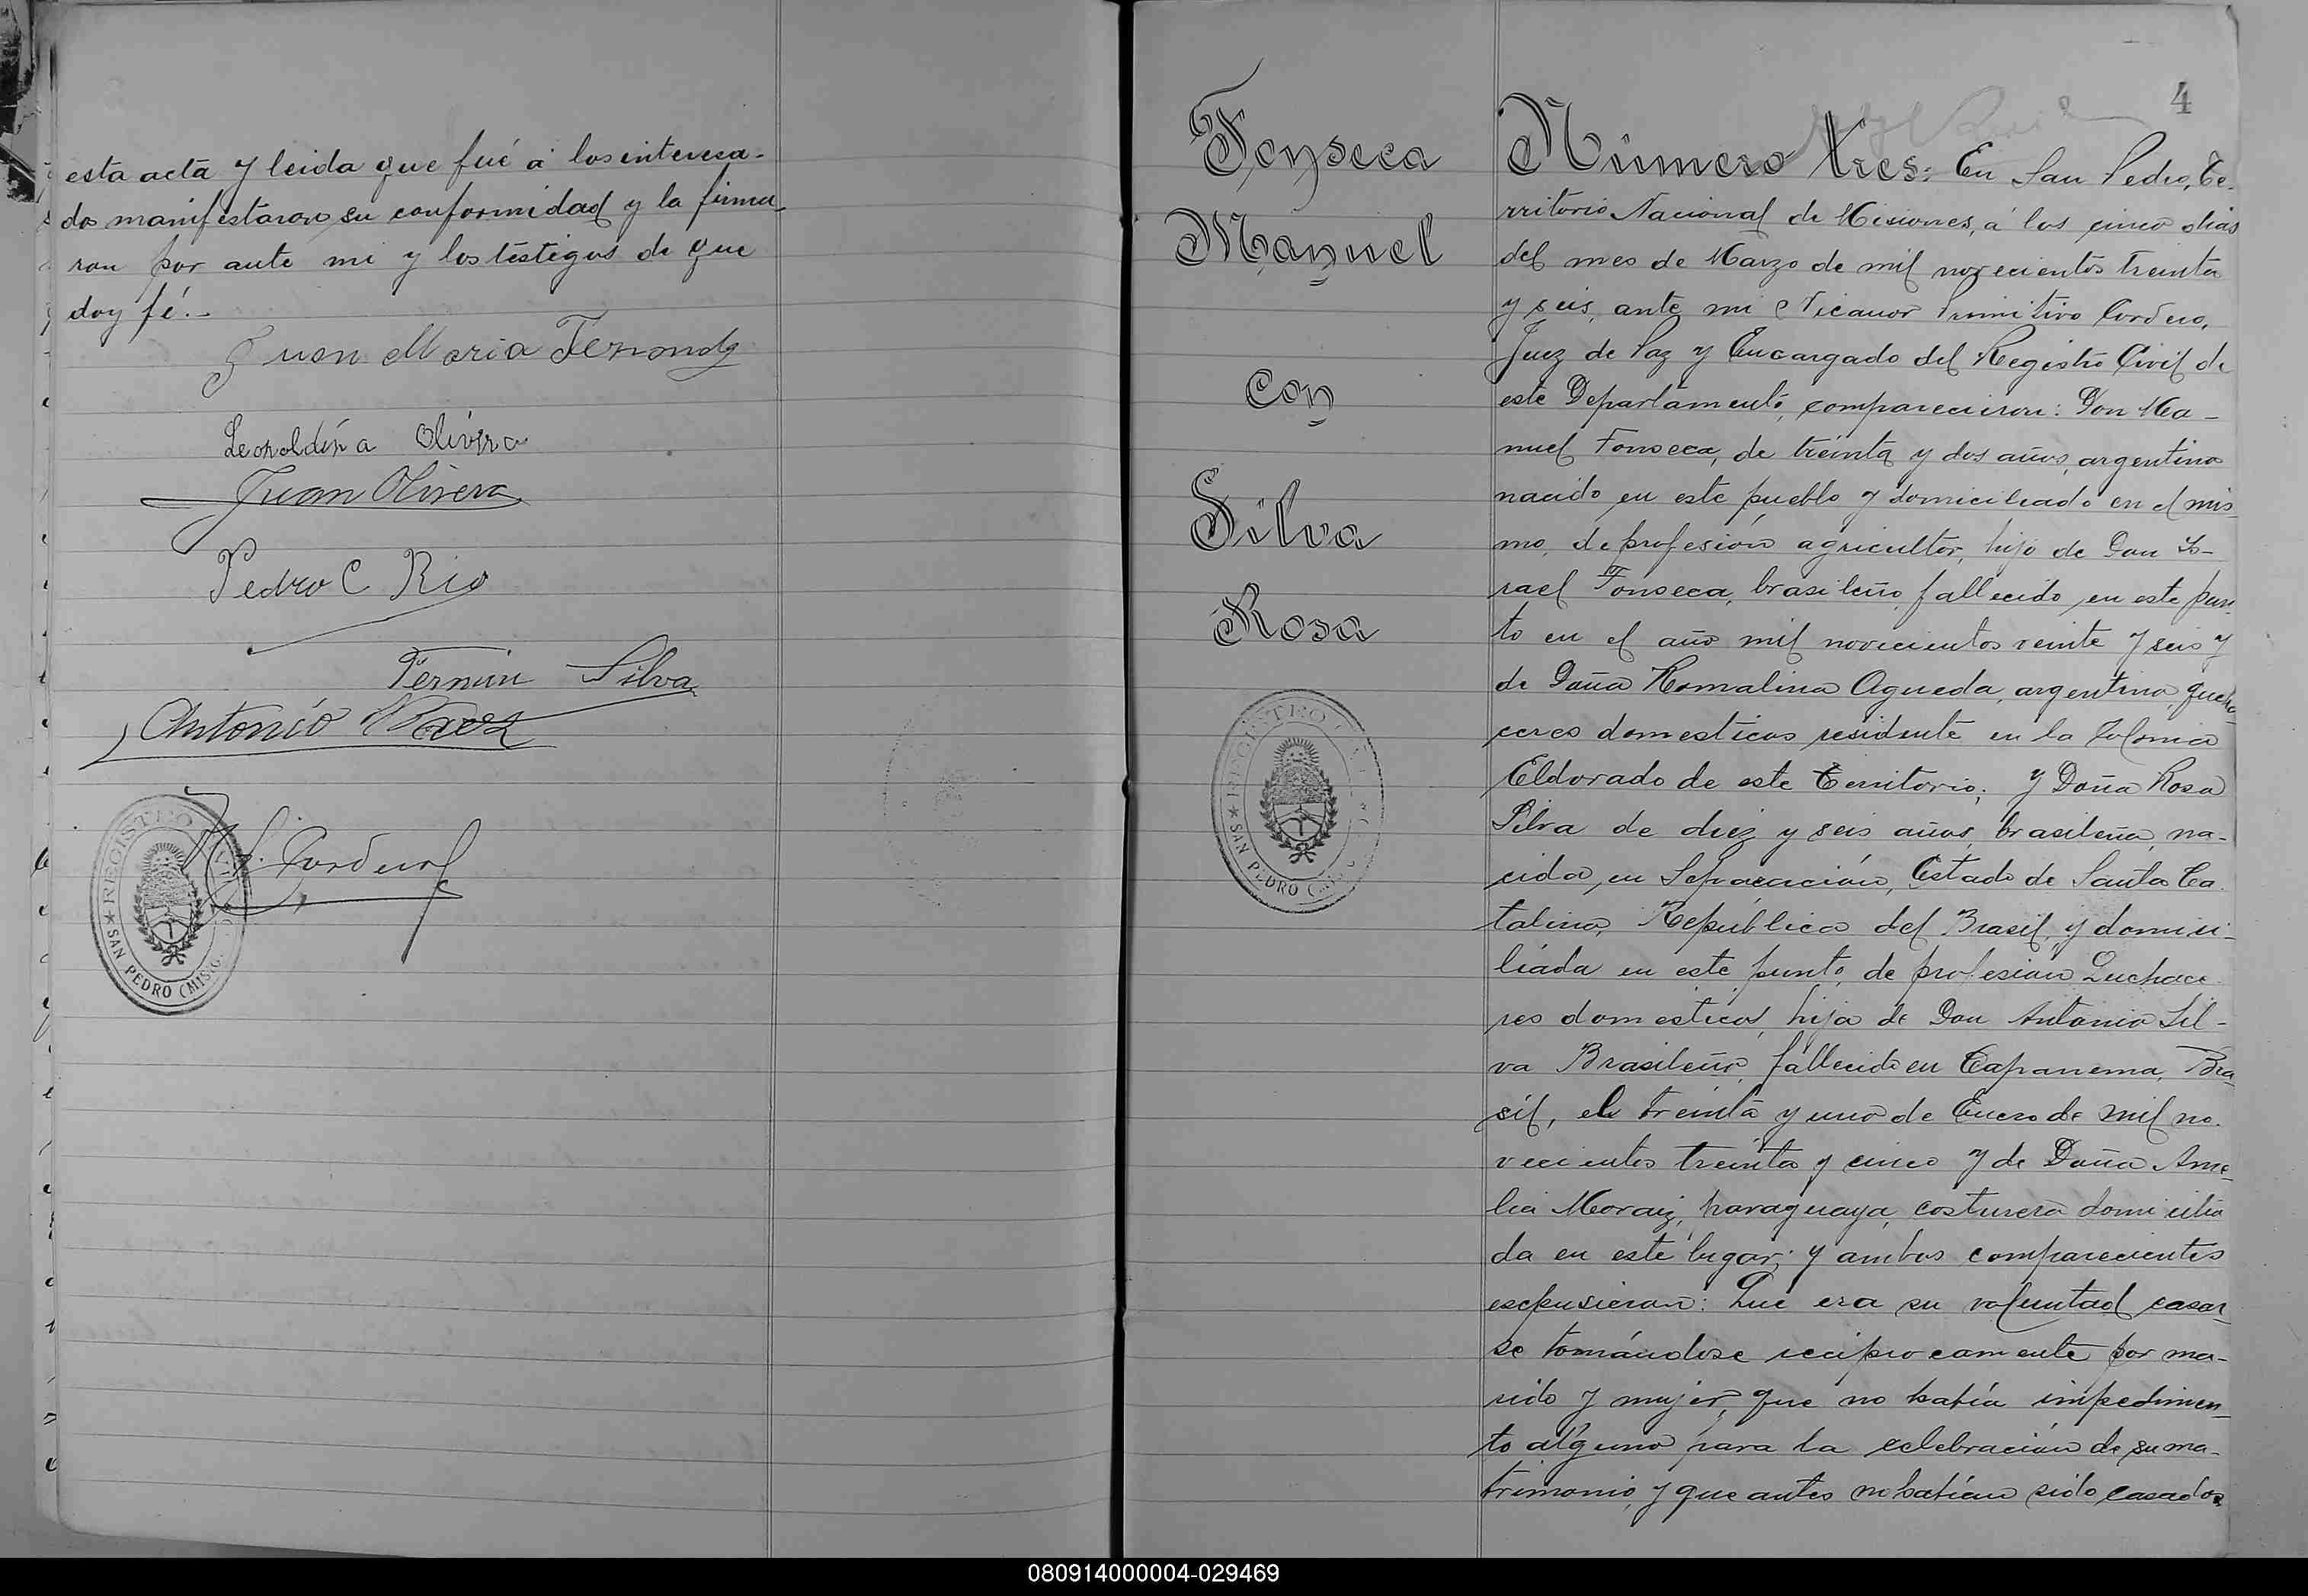 esta acta y leida que fué á los interesa-
dos manifestaron su conformidad y la firma-
ron por ante mi y los testigos de que
doy fé.-
Juan Maria Fernandz
Leopoldina Olivera
Juan Olivera
Pedro C Rios
Fermin Silva
Antonio
REGISTRO CIVIL
SAN PEDRO (MIS.)
4
Fonseca
Manuel
con
Silva
Rosa
REGISTRO CIVIL
SAN PEDRO (MIS.)
Número tres: En San Pedro, Te-
rritorio Nacional de Misiones, á los cinco dias
del mes de Marzo de mil novecientos treinta
y seis, ante mi Nicanor Primitivo Cordero,
Juez de Paz y Encargado del Registro Civil de
este Departamento, comparecieron: Don Ma-
nuel Fonseca, de treinta y dos años, argentino
nacido en este pueblo y domiciliado en el mis-
mo, de profesión agricultor, hijo de Don Is-
rael Fonseca, brasileño, fallecido en este pun-
to en el año mil novecientos veinte y seis y
de Doña Romalina Agueda, argentina, queha-
ceres domesticos residente en la Colonia
Eldorado de este Territorio; y Doña Rosa
Silva de diez y seis años, brasileña, na-
cida en Separación, Estado de Santa Ca-
talina, República del Brasil, y domici-
liada en este punto, de profesian Quehace-
res domesticos, hija de Don Antonio Sil-
va Brasileño, fallecido en Capanema, Bra-
sil, el treinta y uno de Enero de mil no-
vecientos treinta y cinco y de Doña Ame-
lia Moraiz, paraguaya, costurera domicilia
da en este lugar; y ambos comparecientes
escpusieran: Que era su voluntad casar-
se tomándose reciprocamente por ma-
rido y mujer, que no habia impedimen-
to alguno para la celebración de su ma-
trimonio, y que antes no habian sido casados,
080914000004-029469